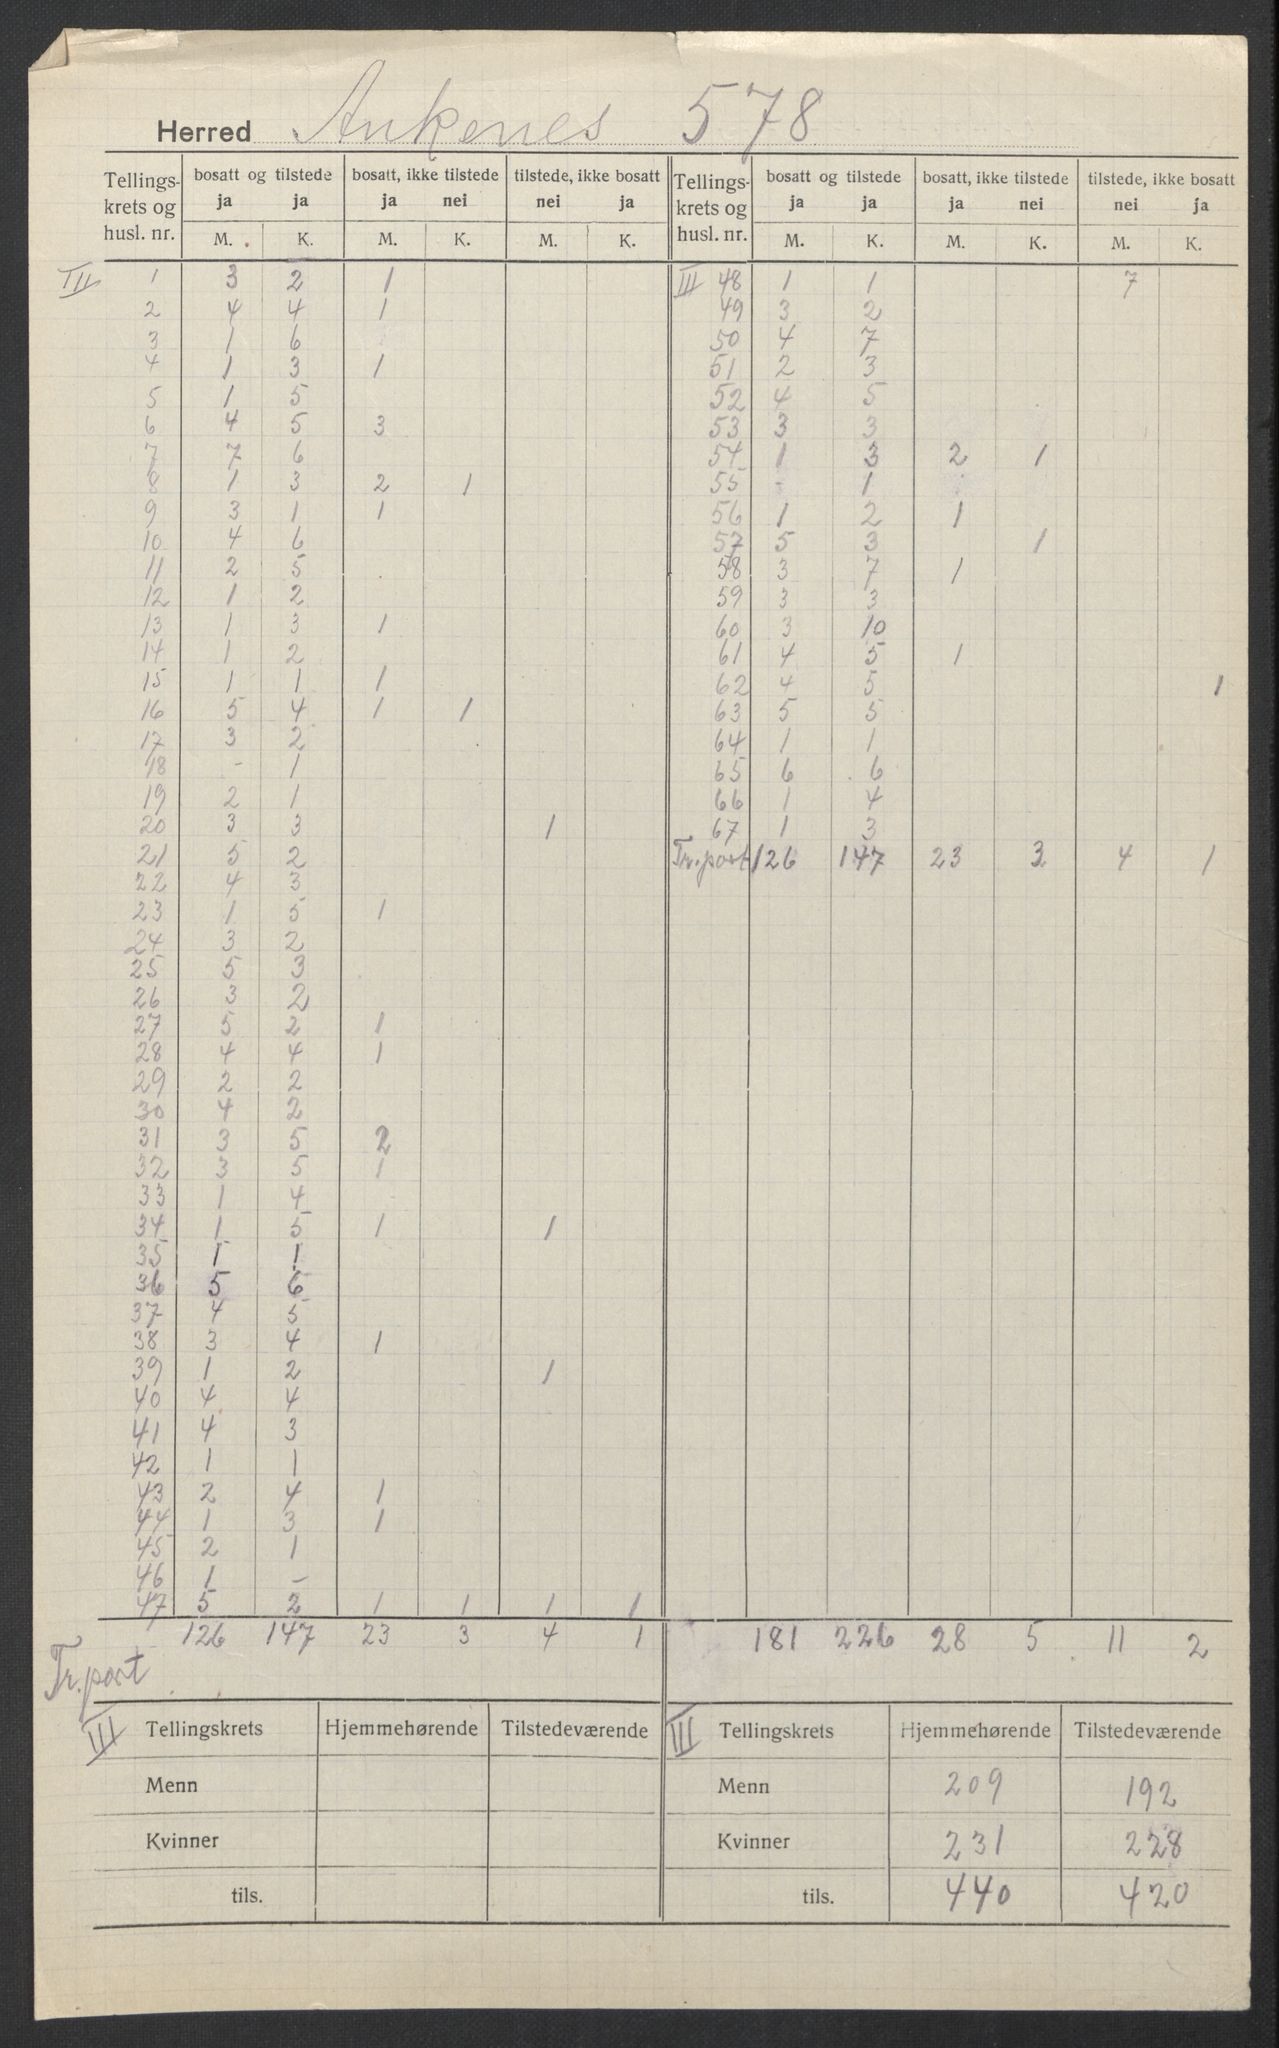 Herred Ankenes 578
Tellings- krets og husl. nr. | bosatt og tilstede | bosatt, ikke tilstede | tilstede, ikke bosatt | Tellings- krets og husl. nr. | bosatt og tilstede | bosatt, ikke tilstede | tilstede, ikke bosatt
ja ja ja nei nei ja ja ja ja nei nei ja
M. K. M. K. M. K. M. K. M. K. M. K.
III 1 3 2 1
2 4 4 1
3 1 6
4 1 3 1
5 1 5
6 4 5 3
7 7 6
8 1 3 2 1
9 3 1 1
10 4 6
11 2 5
12 1 2
13 1 3 1
14 1 2
15 1 1 1
16 5 4 1 1
17 3 2
18 - 1
19 2 1
20 3 3 1
21 5 2
22 4 3
23 1 5 1
24 3 2
25 5 3
26 3 2
27 5 2 1
28 4 4 1
29 2 2
30 4 2
31 3 5 2
32 3 5 1
33 1 4
34 1 5 1 1
35 1 1
36 5 6
37 4 5
38 3 4 1
39 1 2 1
40 4 4
41 4 3
42 1 1
43 2 4 1
44 1 3 1
45 2 1
46 1 -
47 5 2 1 1 1 1
Tr.port 126 147 23 3 4 1
III 48 1 1 7
49 3 2
50 4 7
51 2 3
52 4 5
53 3 3
54 1 3 2 1
55 - 1
56 1 2 1
57 5 3 1
58 3 7 1
59 3 3
60 3 10
61 4 5 1
62 4 5 1
63 5 5
64 1 1
65 6 6
66 1 4
67 1 3
Tr.port 126 147 23 3 4 1
181 226 28 5 11 2
III Tellingskrets Hjemmehørende Tilstedeværende
Menn
Kvinner
tils.
III Tellingskrets Hjemmehørende Tilstedeværende
Menn 209 192
Kvinner 231 228
tils. 440 420